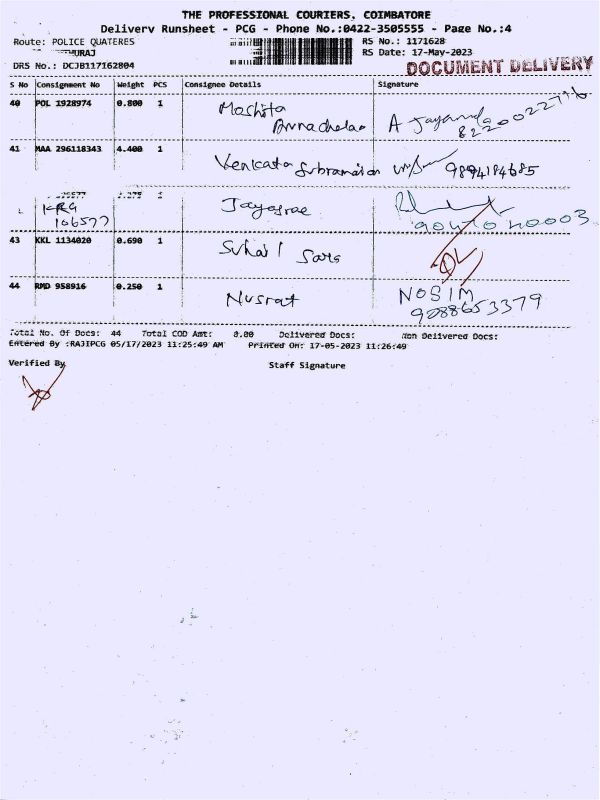 THE PROFESSIONAL COURIERS, COIMBATORE
Delivery Runsheet - PCG - Phone No.:0422-3505555 - Page No.:4
Route: POLICE QUATERES RS No.: 1171628
MURAJ RS Date: 17-May-2023
DRS No.: DCJB117162804 DOCUMENT DELIVERY
S No Consignment No Weight PCS Consignee Details Signature
40 POL 1928974 0.800 1 A Jayanand
8220022716
41 MAA 296118343 4.400 1 Venkata Subramanian 9894184685
KRG
106577 Jayasree
43 KKL 1134020 0.690 1 Suhail Sara
44 RMD 958916 0.250 1 Nusrat NOSIM
9288653379
Total No. Of Docs: 44 Total COD Amt: 0.00 Delivered Docs: Non Delivered Docs:
Entered By :RAJIPCG 05/17/2023 11:25:49 AM Printed On: 17-05-2023 11:26:49
Verified By Staff Signature